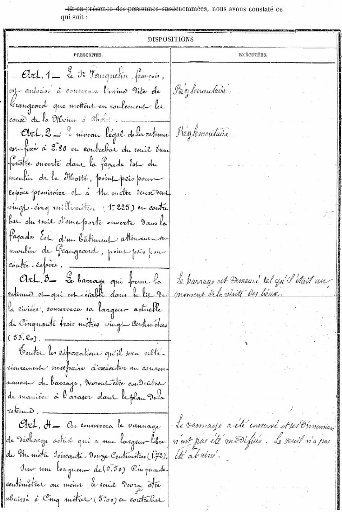 et en présence des personnes susdénommées, nous avons constaté ce
qui suit :
DISPOSITIONS
PRESCRITES.
EXÉCUTÉES.
Art. 1 — Le Sr Vauquelin, françois,
est autorisé à conserver l'usine dite de
Grangeard que mettent en roulement les
eaux de la
Réglementaire.
Art. 2 — Le niveau légal de la retenue
est fixé à 2m80 en contrebas du seuil d'une
fenêtre ouverte dans la façade Est du
moulin de la Motte, point pris pour
repère provisoire et à Un mètre deux cent
vingt-cinq millimètres (1m225) en contre
bas du seuil d'une porte ouverte dans la
façade Est d'un bâtiment attenant au
moulin de Grangeard, point pris pour
contre-repère.
Réglementaire
Art. 3 — Le barrage qui forme la
retenue et qui est établi dans le lit de
la rivière, conservera sa largeur actuelle
de Cinquante trois mètres vingt centimètres
(53.20).
Toutes les réparations qu'il sera
nécessaire d'exécuter au couron-
nement du barrage, devront être conduites
de manière à l'araser dans le plan de la
retenue.
Le barrage est demeuré tel qu'il était au
moment de la visite des lieux.
Art. 4 — On conservera le vannage
de décharge actuel qui a une largeur libre
de Un mètre soixante-douze Centimètres (1.72).
Sur une longueur de (0.50) Cinquante
centimètres au moins le seuil devra être
abaissé à Cinq mètres (5m00) en contrebas
Le vannage a été conservé et ses dimensions
n'ont pas été modifiées. Le seuil n'a pas
été abaissé.